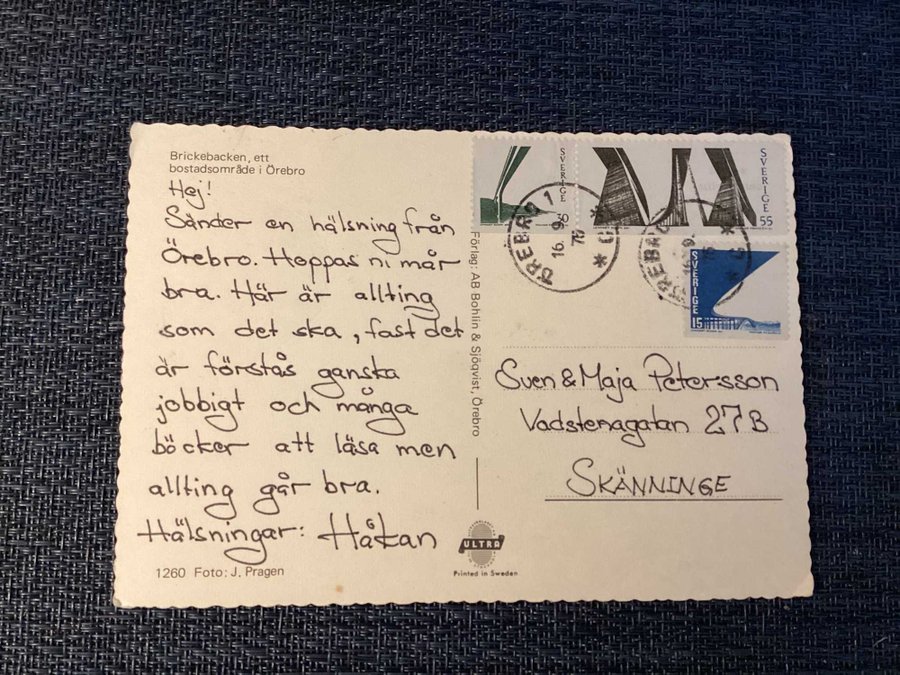 Brickebacken, ett
bostadsområde i Örebro
Hej!
Sänder en hälsning från
Örebro. Hoppas ni mår
bra. Här är allting
som det ska, fast det
är förstås ganska
jobbigt och många
böcker att läsa men
allting går bra.
Hälsningar: Håkan
1260 Foto: J. Pragen
Förlag: AB Bohlin & Sjöqvist, Örebro
ULTRA
Printed in Sweden
SVERIGE
30
SVERIGE
55
SVERIGE
15
ÖREBRO 1
16.9.
Sven & Maja Petersson
Vadstenagatan 27B
SKÄNNINGE